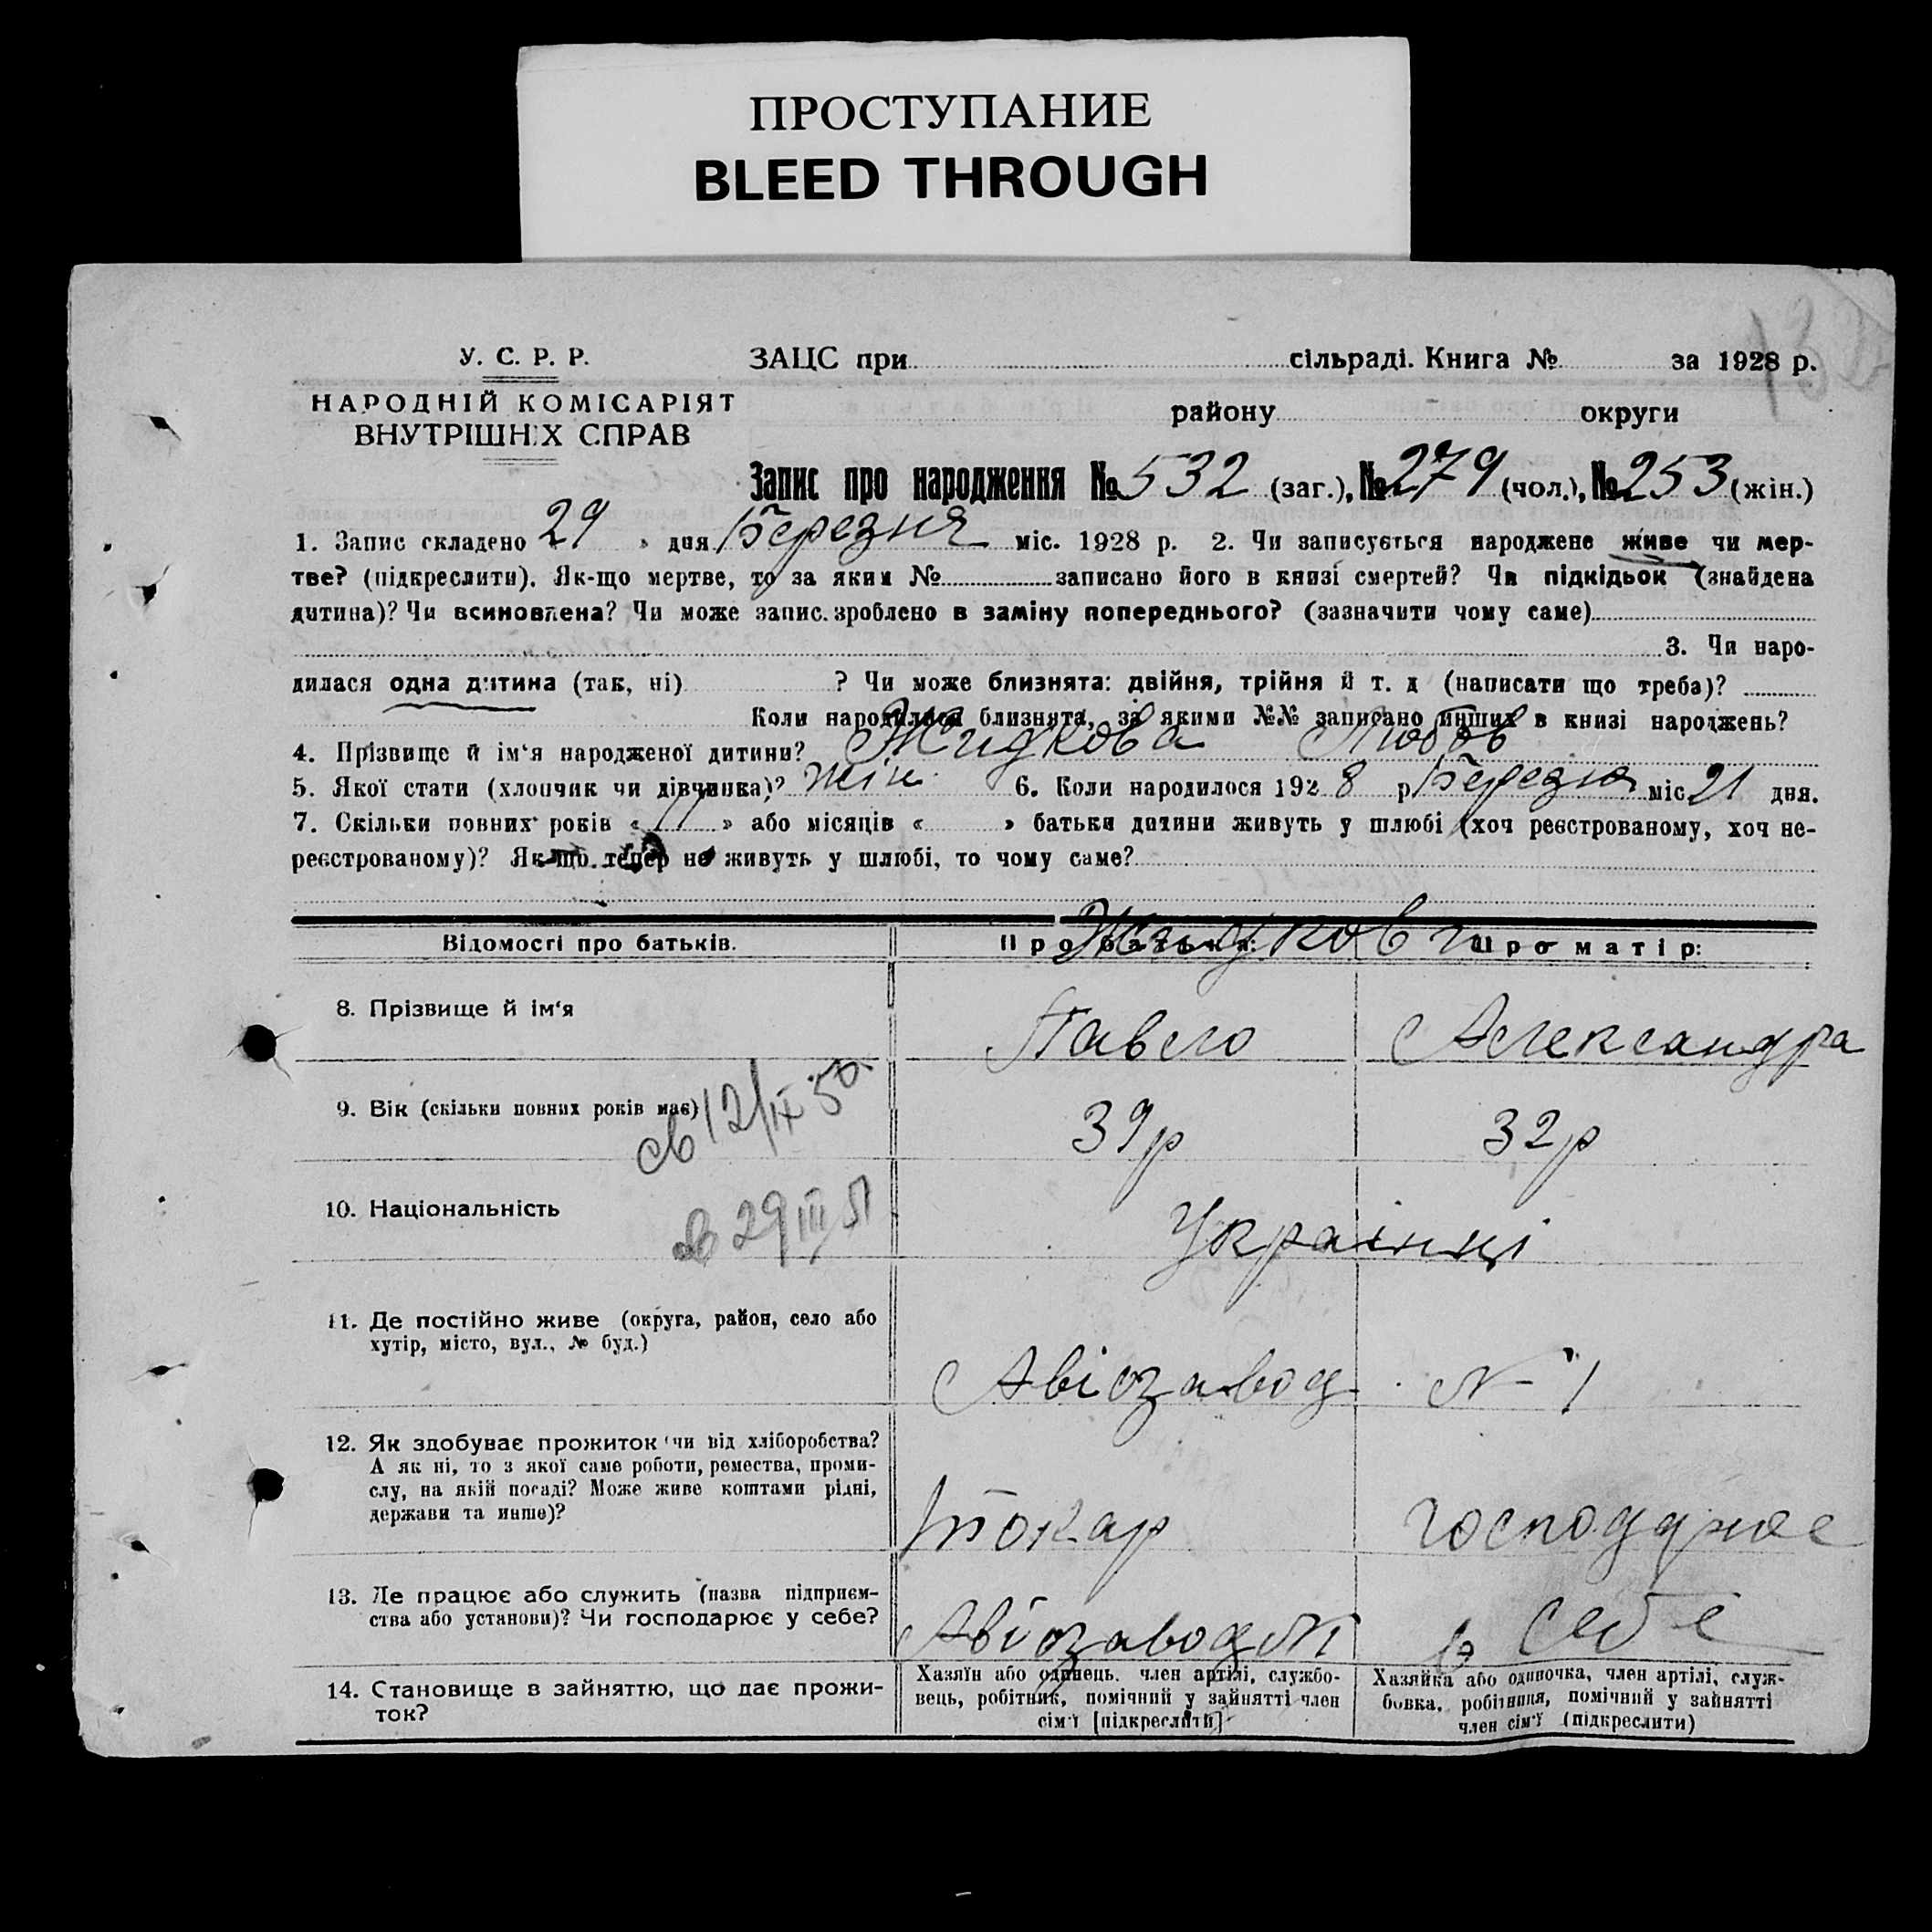 ПРОСТУПАНИЕ
BLEED THROUGH
У. С. Р. Р.
НАРОДНІЙ КОМІСАРІЯТ
ВНУТРІШНІХ СПРАВ
ЗАЦС при сільраді. Книга № за 1928 р.
району округи
Запис про народження № 532 (заг.), № 279 (чол.), № 253 (жін.)
1. Запис складено 29 » дня Березня міс. 1928 р. 2. Чи записується народжене живе чи мер-
тве? (підкреслити). Як-що мертве, то за яким № записано його в книзі смертей? Чи підкідьок (знайдена
дитина)? Чи всиновлена? Чи може запис. зроблено в заміну попереднього? (зазначити чому саме)
3. Чи наро-
дилася одна дитина (так, ні) ? Чи може близнята: двійня, трійня й т. д (написати що треба)?
Коли народилися близнята, за якими №№ записано инших в книзі народжень?
4. Прізвище й ім‘я народженої дитини? Жидкова Любов
5. Якої стати (хлопчик чи дівчинка)? жін. 6. Коли народилося 192 8 р Березня міс 21 дня.
7. Скільки повних років « 11 » або місяців « » батьки дитини живуть у шлюбі (хоч реєстрованому, хоч не-
реєстрованому)? Як-що тепер не живуть у шлюбі, то чому саме?
Відомості про батьків. Про батька: Жидкови Про матір:
8. Прізвище й ім‘я Павло Александра
9. Вік (скільки повних років має) 39р 32р
св 12/IX 50.
10. Національність Українці
св 29/III 51
11. Де постійно живе (округа, район, село або
хутір, місто, вул., № буд.)
Авіозавод N 1
12. Як здобуває прожиток чи від хліборобства?
А як ні, то з якої саме роботи, ремества, проми-
слу, на якій посаді? Може живе коштами рідні,
держави та инше)?
токар господарює
13. Де працює або служить (назва підприєм-
ства або установи)? Чи господарює у себе?
Авіозавод N1 в себе
14. Становище в зайняттю, що дає прожи-
ток?
Хазяїн або одинець. член артілі, службо-
вець, робітник, помічний у зайнятті член
сім‘ї [підкреслити]
Хазяйка або одиночка, член артілі, служ-
бовка, робітниця, помічний у зайнятті
член сім‘ї (підкреслити)